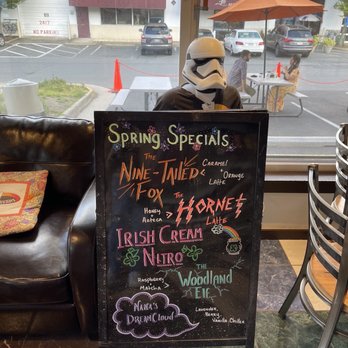 NO PARKING
SPRING SPECIALS
THE
NINE-TAILED
FOX
CARAMEL
ORANGE
LATTE
HONEY
AZTECA
THE
HORNET
LATTE
IRISH CREAM
NITRO
RASPBERRY
MATCHA
THE
WOODLAND
ELF
LAVENDER,
HONEY,
VANILLA, CHILLER
NANA'S
DREAMCLOUD